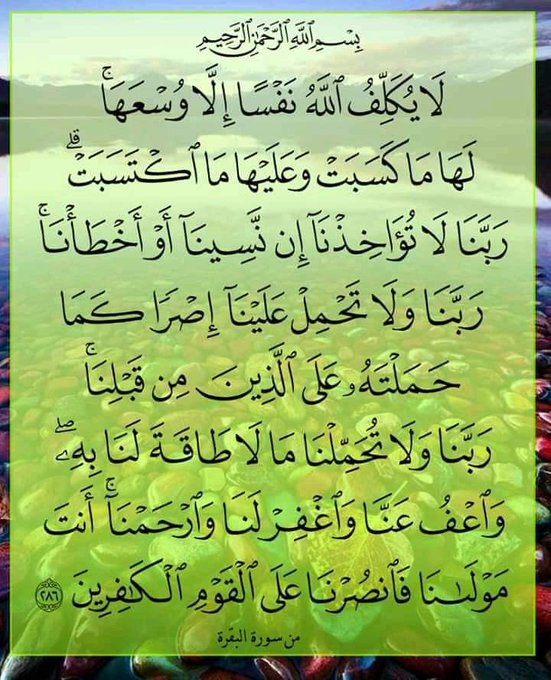 بِسْمِ ٱللَّهِ ٱلرَّحْمَٰنِ ٱلرَّحِيمِ
لَا يُكَلِّفُ ٱللَّهُ نَفْسًا إِلَّا وُسْعَهَاۚ
لَهَا مَا كَسَبَتْ وَعَلَيْهَا مَا ٱكْتَسَبَتْۗ
رَبَّنَا لَا تُؤَاخِذْنَآ إِن نَّسِينَآ أَوْ أَخْطَأْنَاۚ
رَبَّنَا وَلَا تَحْمِلْ عَلَيْنَآ إِصْرًا كَمَا
حَمَلْتَهُۥ عَلَى ٱلَّذِينَ مِن قَبْلِنَاۚ
رَبَّنَا وَلَا تُحَمِّلْنَا مَا لَا طَاقَةَ لَنَا بِهِۦۖ
وَٱعْفُ عَنَّا وَٱغْفِرْ لَنَا وَٱرْحَمْنَآۚ أَنتَ
مَوْلَىٰنَا فَٱنصُرْنَا عَلَى ٱلْقَوْمِ ٱلْكَٰفِرِينَ ٢٨٦
من سورة البقرة